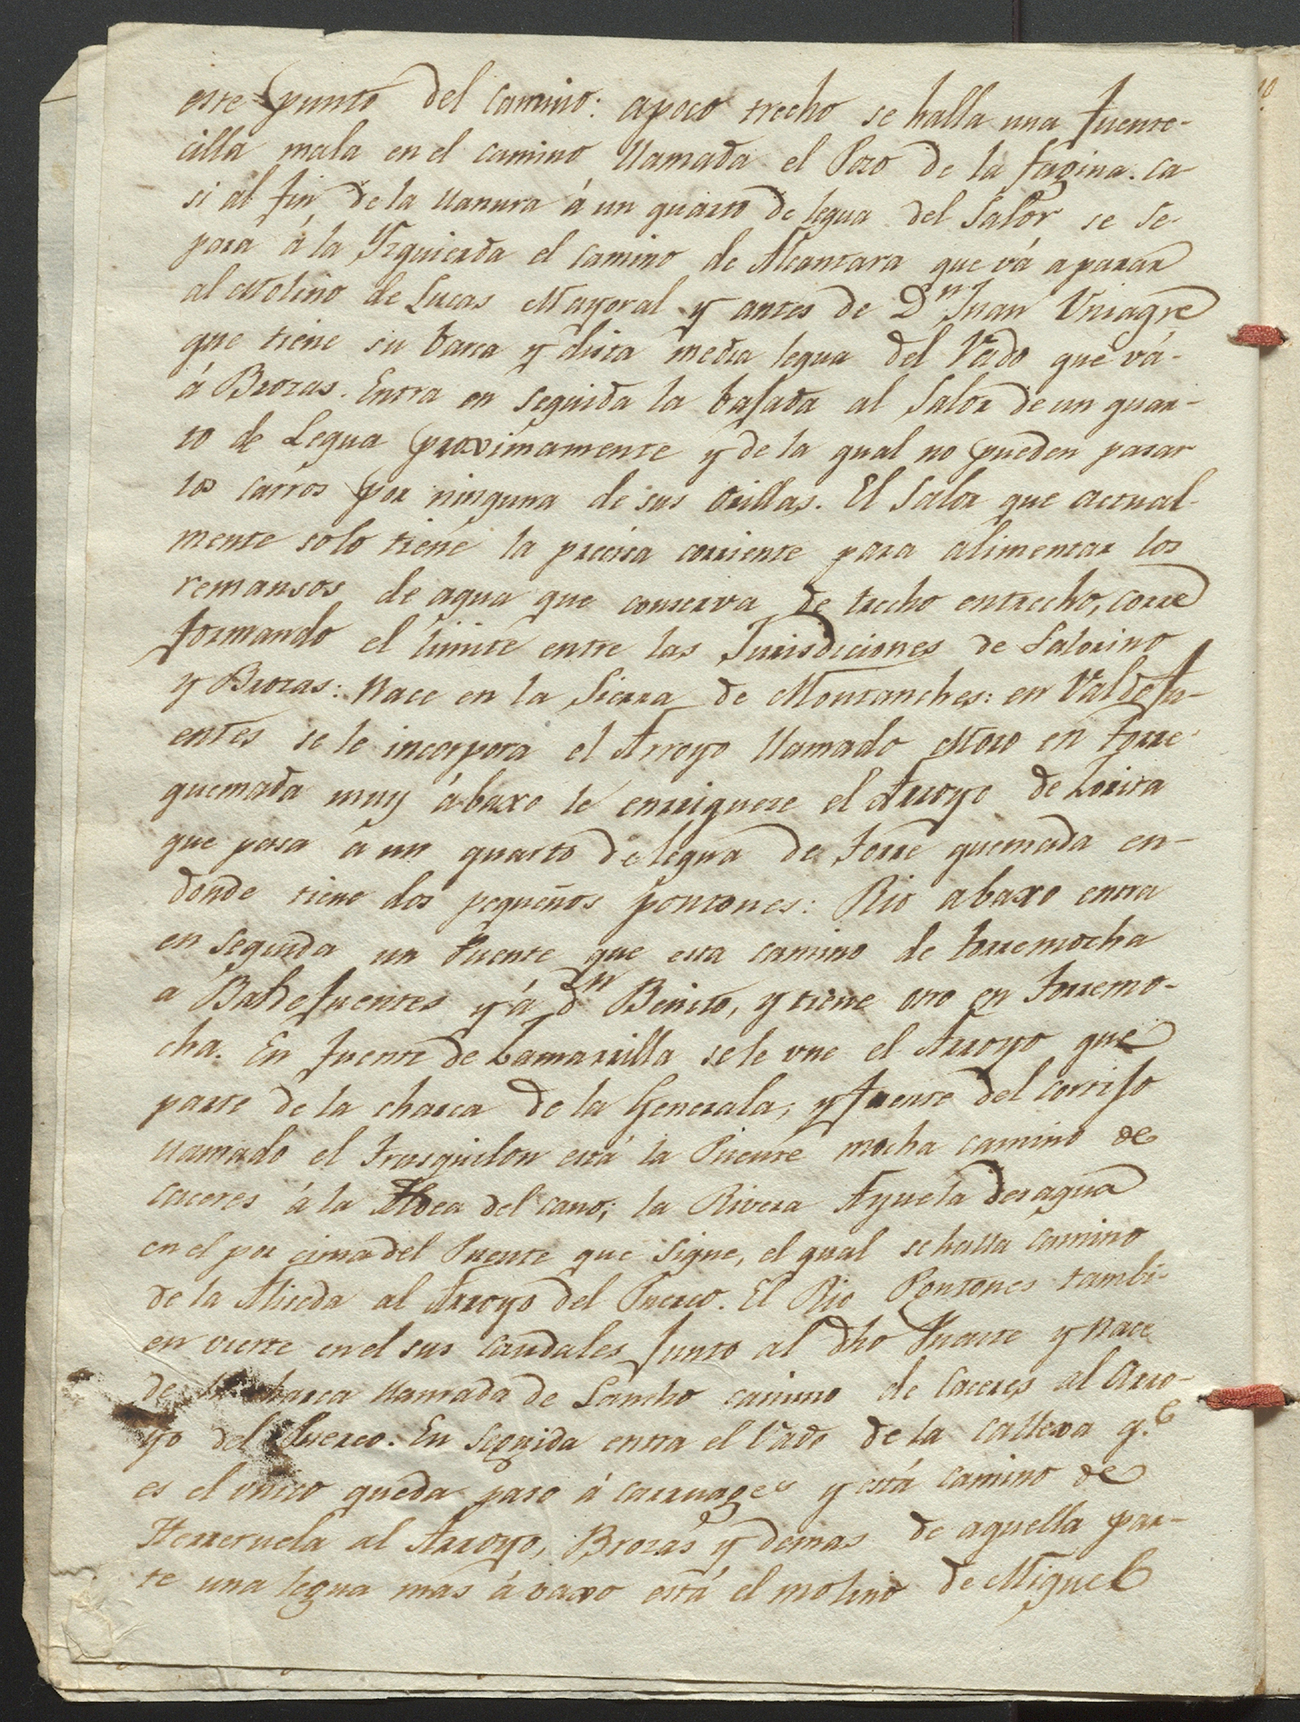 este punto del camino: apoco trecho se halla una fuente-
cilla mala en el camino llamada el Pozo de la fagina. ca
si al fin de la llanura á un quarto de legua del Salor se se-
para á la Yzquierda el camino de Alcantara que vá a parar
al Molino de Lucas Mayoral y antes de Dn Juan Viniagre
que tiene su barca y dista media legua del Vado que vá-
á Brozas. Entra en seguida la bajada al Salor de un quar-
to de Legua proximamente y de la qual no pueden pasar
los carros por ninguna de sus Orillas. El Salor que actual-
mente solo tiene la precisa corriente para alimentar los
remansos de agua que conserva de trecho entrecho, corre
formando el limite entre las Jurisdiciones de Salorino
y Brozas: Nace en la Sierra de Montanches: en Valdefu-
entes se le incorpora el Arroyo llamado Moro en torre-
quemada muy ábaxo le enrriqueze el Arroyo de Zorita
que pasa á un quarto de legua de Torre quemada en-
donde tiene dos pequeños pontones: Rio abaxo entra
en seguida un Puente que esta camino de torremocha
a Baldefuentes y á dn Benito, y tiene otro en Torremo-
cha. En fuente de Zamarrilla sele vne el Arroyo que
parte de la charca de la Generala; y frente del cortijo
llamado el Trasquilon está la Puente mocha camino de
Caceres á la Aldea del cano; la Rivera Ayuela desagua
en el por cima del Puente que sigue, el qual se halla camino
de la Aliseda al Arroyo del Puerco. El Rio Pontones tambi-
en vierte en el sus caudales Junto al dho Puente y Nace
de la charca llamada de Sancho camino de Caceres al Arro-
yo del Puerco. En seguida entra el Vado de la Callexa q.e
es el vnico queda paso á carruages y está camino de
Herreruela al Arroyo, Brozas y demas de aquella par-
te una legua mas á vaxo está el molino de Miguel